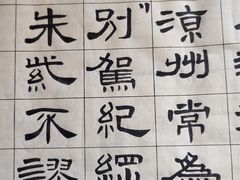 涼州常為
別駕紀綱
朱紫不謬